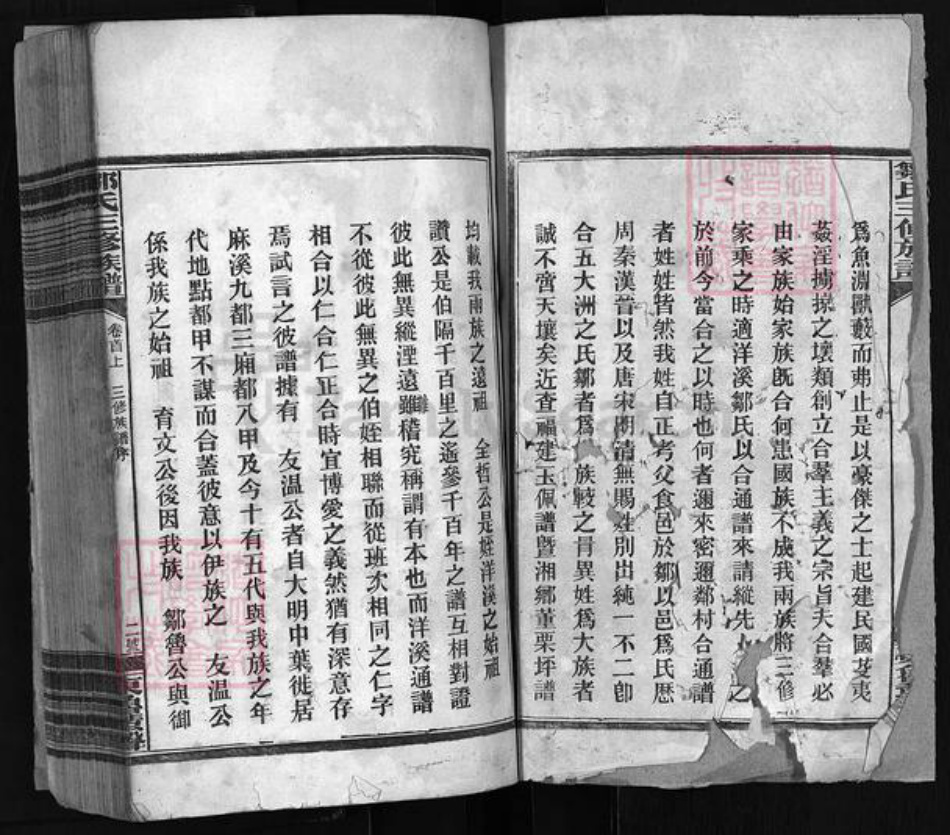 鄒氏三修族譜
為魚淵獸藪而弗止是以豪傑之士起建民國芟夷
姦淫擄掠之壞類創立合羣主義之宗旨夫合羣必
由家族始家族既合何患國族不成我兩族將三修
家乘之時適洋溪鄒氏以合通譜來請縱先之
於前今當合之以時也何者邇來密邇鄰村合通譜
者姓姓皆然我姓自正考父食邑於鄒以邑爲氏歷
周秦漢晉以及唐宋明清無賜姓別出純一不二卽
合五大洲之氏鄒者爲族較之冐異姓爲大族者
誠不啻天壤矣近查福建玉佩譜曁湘鄉董栗坪譜
均載我兩族之遠祖 全哲公是姪洋溪之始祖
讚公是伯隔千百里之遙參千百年之譜互相對證
彼此無異縱湮遠難稽究稱謂有本也而洋溪通譜
不從彼此無異之伯姪相聯而從班次相同之仁字
相合以仁合仁正合時宜博愛之義然猶有深意存
焉試言之彼譜據有 友溫公者自大明中葉徙居
麻溪九都三廂都八甲及今十有五代與我族之年
代地點都甲不謀而合蓋彼意以伊族之 友溫公
係我族之始祖 育文公後因我族 鄒魯公與御
鄒氏三修族譜
卷首上 三修族譜序